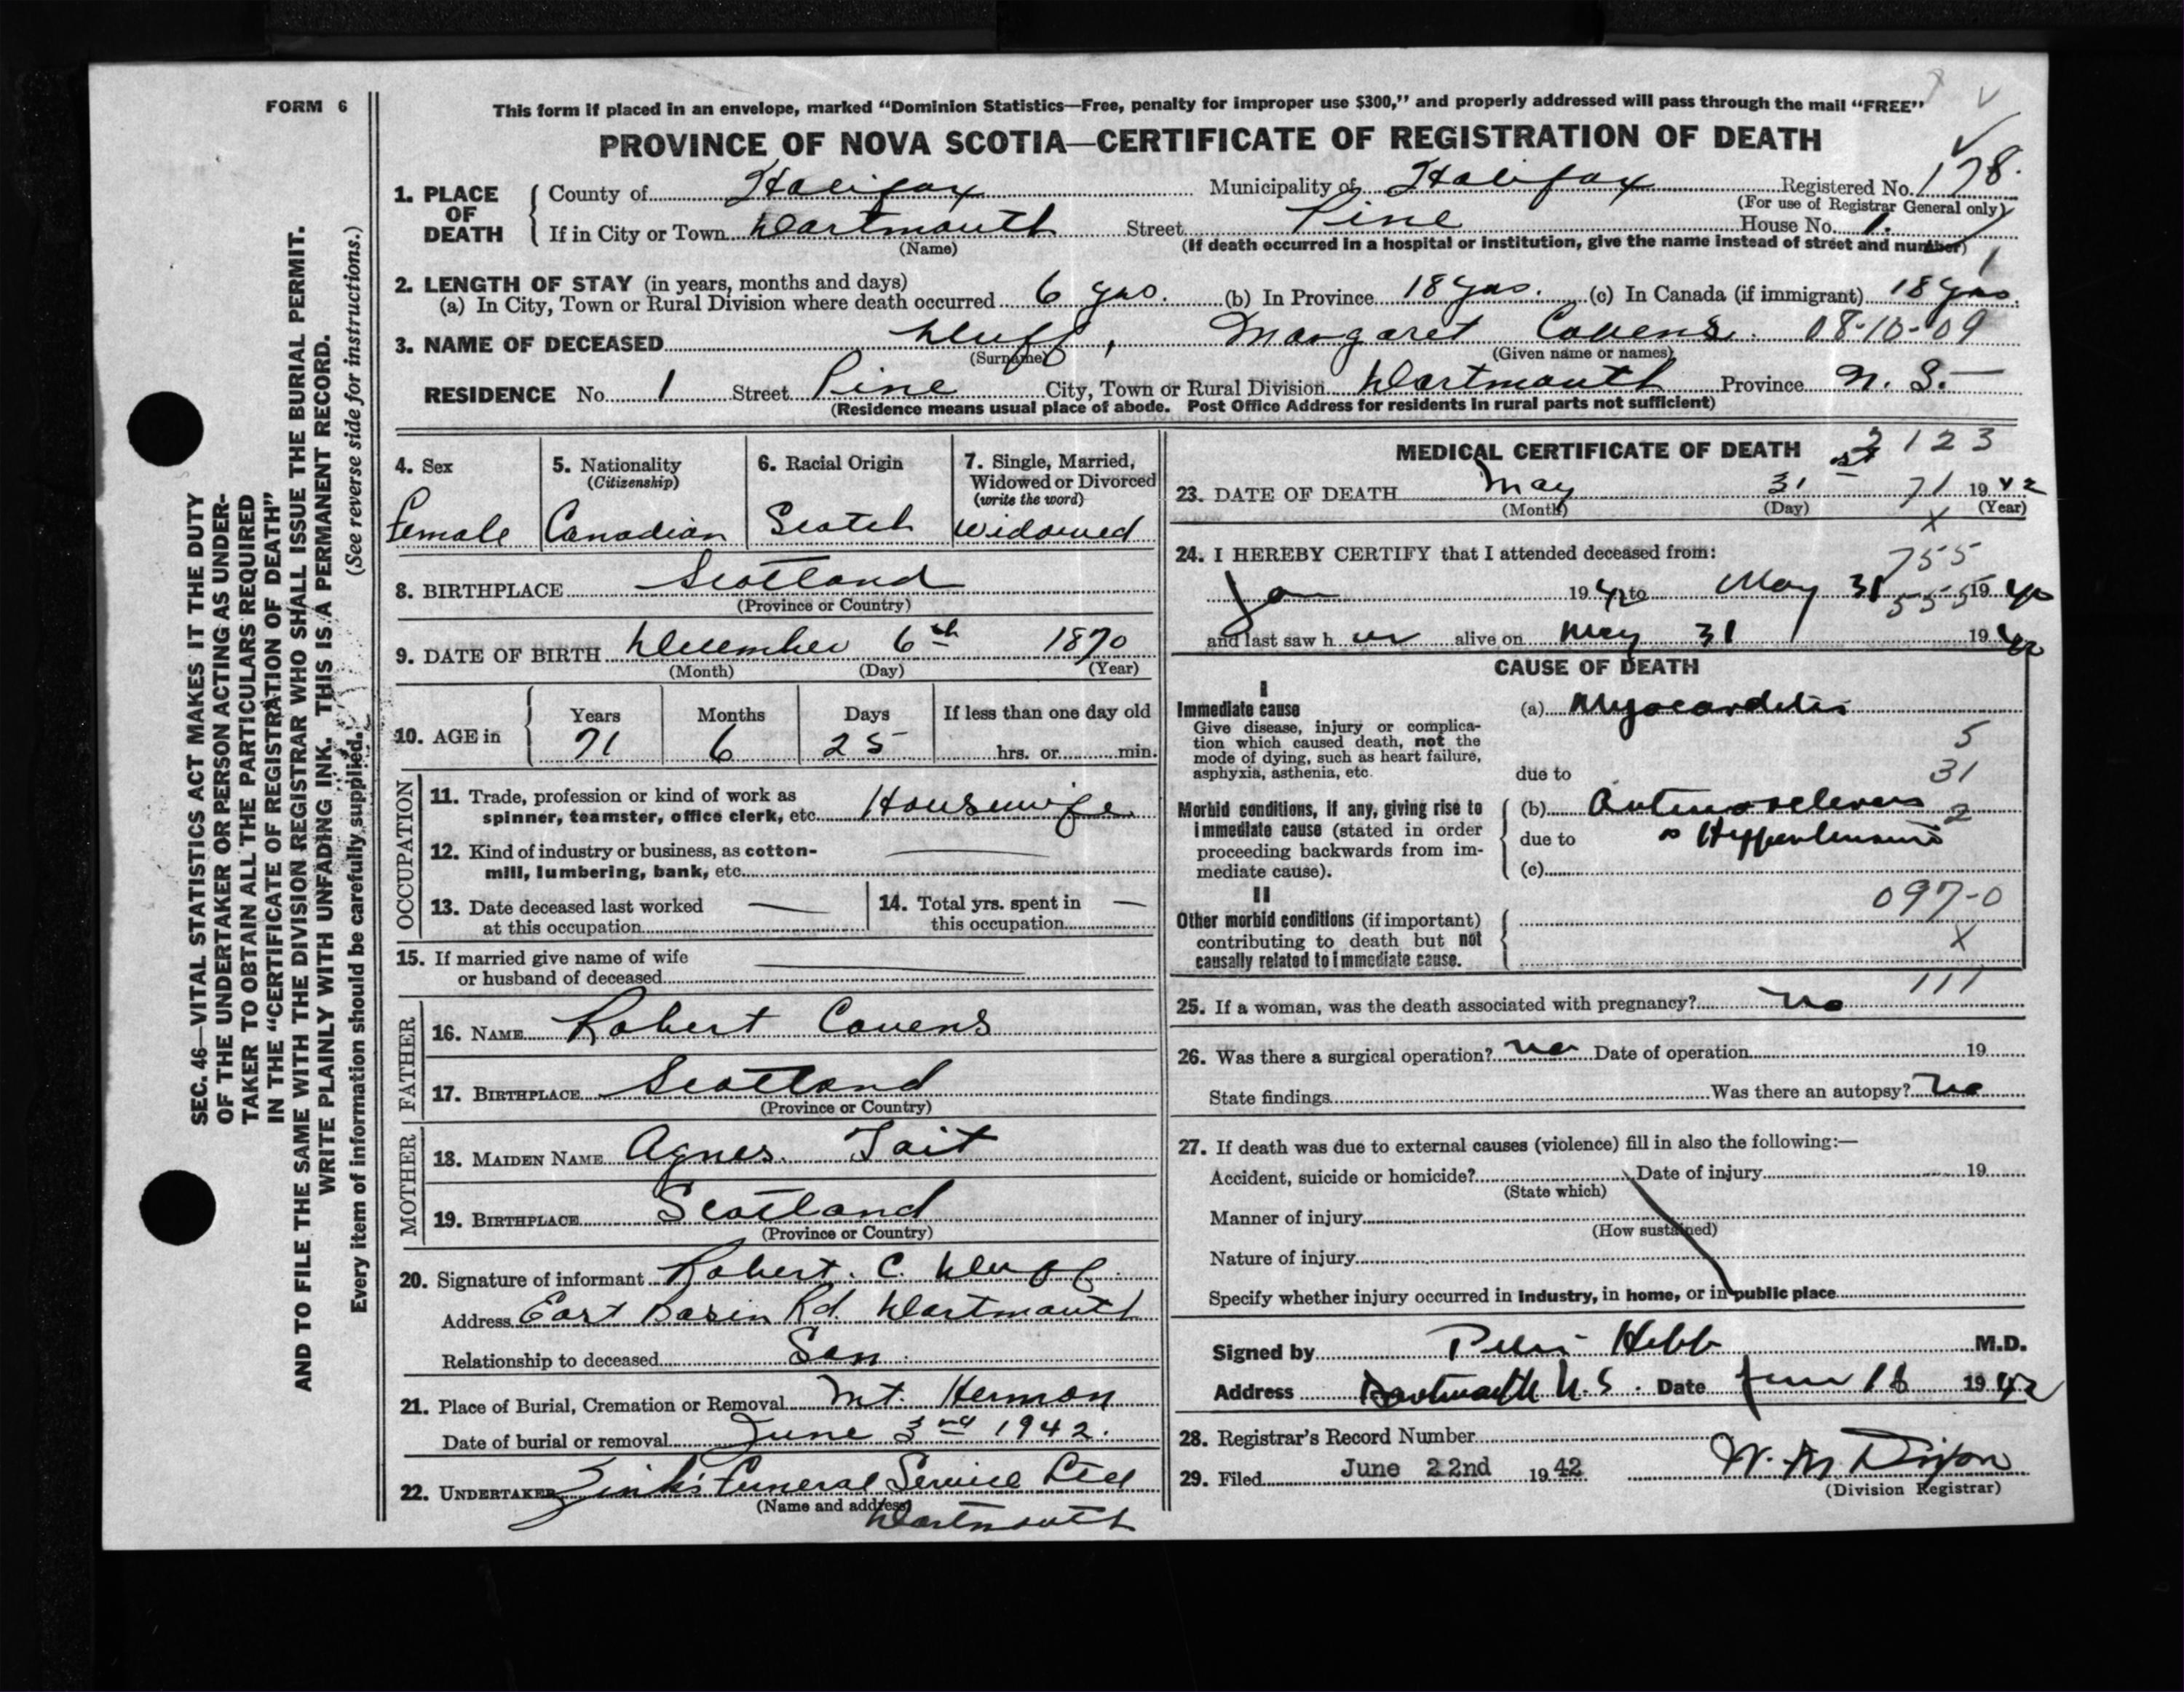 FORM 6
This form if placed in an envelope, marked “Dominion Statistics—Free, penalty for improper use $300,” and properly addressed will pass through the mail “FREE”
PROVINCE OF NOVA SCOTIA—CERTIFICATE OF REGISTRATION OF DEATH
SEC. 46—VITAL STATISTICS ACT MAKES IT THE DUTY
OF THE UNDERTAKER OR PERSON ACTING AS UNDER-
TAKER TO OBTAIN ALL THE PARTICULARS REQUIRED
IN THE “CERTIFICATE OF REGISTRATION OF DEATH”
AND TO FILE THE SAME WITH THE DIVISION REGISTRAR WHO SHALL ISSUE THE BURIAL PERMIT.
WRITE PLAINLY WITH UNFADING INK. THIS IS A PERMANENT RECORD.
Every item of information should be carefully supplied. (See reverse side for instructions.)
1. PLACE OF DEATH
County of Halifax Municipality of Halifax Registered No. 178.
(For use of Registrar General only)
If in City or Town Dartmouth Street Pine House No. 1.
(Name) (If death occurred in a hospital or institution, give the name instead of street and number)
1
2. LENGTH OF STAY (in years, months and days)
(a) In City, Town or Rural Division where death occurred 6 yrs. (b) In Province 18 yrs. (c) In Canada (if immigrant) 18 yrs.
3. NAME OF DECEASED Duff, Margaret Covens. 08-10-09
(Surname) (Given name or names)
RESIDENCE No. 1 Street Pine City, Town or Rural Division Dartmouth Province N. S.
(Residence means usual place of abode. Post Office Address for residents in rural parts not sufficient)
4. Sex
Female
5. Nationality
(Citizenship)
Canadian
6. Racial Origin
Scotch
7. Single, Married,
Widowed or Divorced
(write the word)
Widowed
8. BIRTHPLACE Scotland
(Province or Country)
9. DATE OF BIRTH December 6th 1870
(Month) (Day) (Year)
10. AGE in Years Months Days If less than one day old
71 6 25 hrs. or min.
OCCUPATION
11. Trade, profession or kind of work as
spinner, teamster, office clerk, etc. Housewife
12. Kind of industry or business, as cotton-
mill, lumbering, bank, etc. —
13. Date deceased last worked
at this occupation —
14. Total yrs. spent in
this occupation —
15. If married give name of wife
or husband of deceased —
FATHER
16. NAME Robert Covens
17. BIRTHPLACE Scotland
(Province or Country)
MOTHER
18. MAIDEN NAME Agnes Tait
19. BIRTHPLACE Scotland
(Province or Country)
20. Signature of informant Robert. C. Duff
Address East Basin Rd. Dartmouth
Relationship to deceased Son
21. Place of Burial, Cremation or Removal Mt. Hermon
Date of burial or removal June 3rd 1942.
22. UNDERTAKER Zink's Funeral Service Ltd
(Name and address)
Dartmouth
MEDICAL CERTIFICATE OF DEATH
2123
23. DATE OF DEATH May 31st 71 1942
(Month) (Day) (Year)
X
24. I HEREBY CERTIFY that I attended deceased from:
755
Jan 1942 to May 31 555 1942
and last saw her alive on May 31 1942
CAUSE OF DEATH
I
Immediate cause
Give disease, injury or complica-
tion which caused death, not the
mode of dying, such as heart failure,
asphyxia, asthenia, etc.
(a) Myocarditis
5
due to
31
Morbid conditions, if any, giving rise to
immediate cause (stated in order
proceeding backwards from im-
mediate cause).
(b) Arteriosclerosis
2
due to Hypertension
(c)
II
Other morbid conditions (if important)
contributing to death but not
causally related to immediate cause.
097-0
X
111
25. If a woman, was the death associated with pregnancy? no
26. Was there a surgical operation? no Date of operation 19
State findings Was there an autopsy? no
27. If death was due to external causes (violence) fill in also the following:—
Accident, suicide or homicide? Date of injury 19
(State which)
Manner of injury
(How sustained)
Nature of injury
Specify whether injury occurred in industry, in home, or in public place
Signed by Hebb M.D.
Address Dartmouth N. S. Date June 18 1942
28. Registrar's Record Number
29. Filed June 22nd 1942 W. M. Dixon
(Division Registrar)